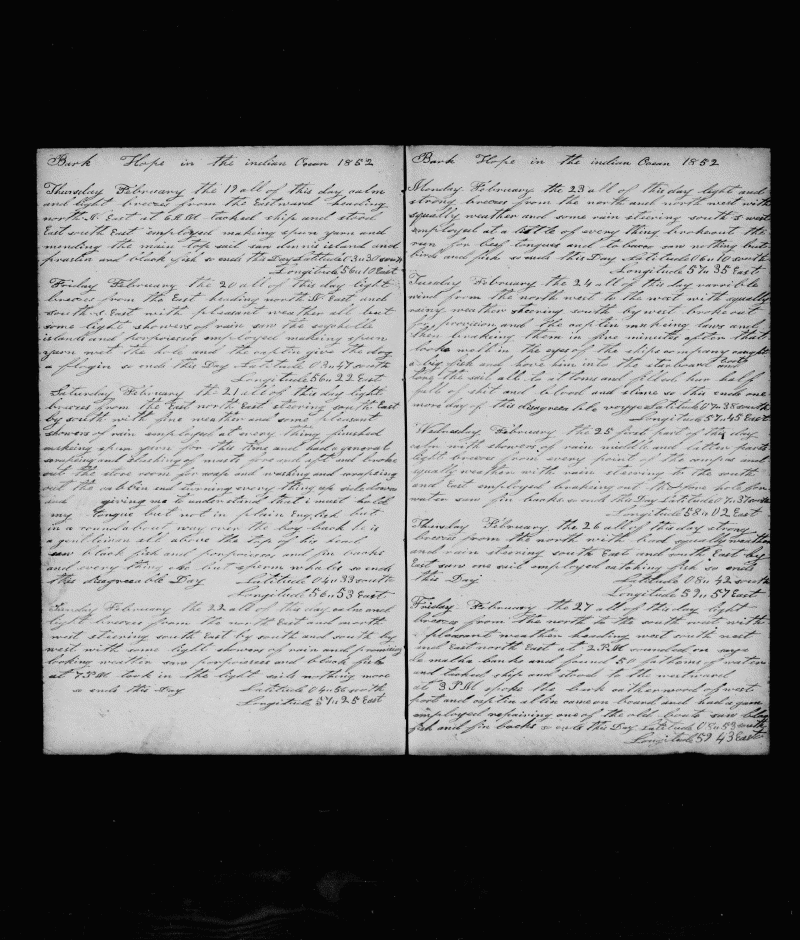 Bark Hope in the indian Ocean 1852
Thursday February the 19 all of this day calm
and light breezes from the Eastward heading
north N East at 6 A.M tacked ship and stood
East south East employed making spun yarn and
mending the main top sail saw dunis island and
praslin and black fish so ends this Day Latitude 03 " 30 south
Longitude 56 " 10 East
Friday February the 20 all of this day light
breezes from the East heading north N East and
south S East with pleasant weather all but
some light showers of rain saw the seychelle
islands and porpoisis employed making spun
yarn wet the hole and the captin give the dog
a flogin so ends this Day Latitude 03 " 47 south
Longitude 56 " 22 East
Saturday February the 21 all of this day light
breezes from the East north East steering south East
by south with fine weather and some pleasant
showers of rain employed at every thing finished
making spun yarn for this time and had a general
scraping and slushing of masts fore and aft and broke
out the store room for soap and washing and scraping
out the cabbin and turning every thing up side down
and giving me to understand that i must hold
my tongue but not in plain English but
in a roundabout way over the boy back he is
a gentleman all above the top of his head
saw black fish and porpoisses and fin backs
and every thing else but sperm whales so ends
this disagreeable Day Latitude 04 " 33 south
Longitude 56 " 53 East
Sunday February the 22 all of this day calm and
light breezes from the north East and north
west steering south East by south and south by
west with some light showers of rain and promising
looking weather saw porpoisses and black fish
at 7 P.M took in the light sails nothing more
so ends this Day Latitude 04 " 56 south
Longitude 57 " 25 East
Bark Hope in the indian Ocean 1852
Monday February the 23 all of this day light and
strong breezes from the north and north west with
squally weather and some rain steering south S west
employed at a little of every thing brokeout the
run for beef tongues and tobacco saw nothing but
birds and fish so ends this Day Latitude 06 " 10 south
Longitude 57 " 35 East
Tuesday February the 24 all of this day varible
wind from the north west to the west with squally
rainy weather steering south by west broke out
for provision and the captin making laws and
then braking them in five minutes after that
looks well in the eyes of the ships company caught
a big fish and hove him into the starboard and
long the sail all to attoms and filled her half
full of shit and blood and slime so this ends one
more day of this disagreeable voyge Latitude 07 " 38 south
Longitude 57 " 45 East
Wednesday February the 25 first part of the day
calm with showers of rain middle and latter parts
light breezes from every point of the compas and
squally weather with rain steering to the south
and East employed braking out the fore hole for
water saw fin backs so ends this Day Latitude 07 " 37 south
Longitude 58 " 02 East
Thursday February the 26 all of this day strong
breezes from the north with bad squally weather
and rain steering south East and south East by
East saw one sail employed catching fish so ends
this Day Latitude 08 " 42 south
Longitude 59 " 57 East
Friday February the 27 all of this day light
breezes from the north to the south west with
pleasant weather heading west south west
and East north East at 2 P.M sounded on saya
de malha banks and found 50 fathoms of water
and tacked ship and stood to the westward
at 3 P.M spoke the bark catherwood of west
port and captin allin came on board and had a gam
employed repairing one of the old boats saw black
fish and fin backs so ends this Day Latitude 08 " 53 south
Longitude 59 43 East